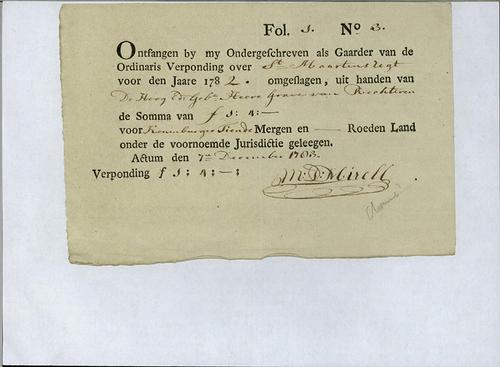 Fol. 1. No 3.
Ontfangen by my Ondergeschreven als Gaarder van de
Ordinaris Verponding over St Maartensregt
voor den Jaare 1782. omgeslagen, uit handen van
De Hoog Ed: Geb: Heere Grave van Rechteren
de Somma van f 1: 4:—
voor Mergen en — Roeden Land
onder de voornoemde Jurisdictie geleegen.
Actum den 7en December 1783.
Verponding f 1: 4:—: